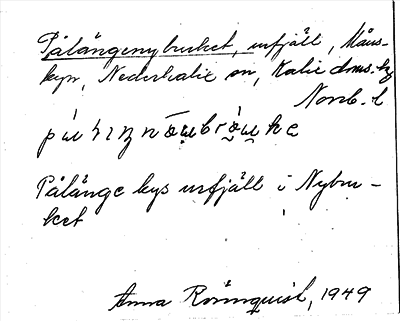 Pålängenybruket, urfjäll, Måns-
byn, Nederkalix sn, Kalix dms. hg
Norrb. l
Pålänge bys urfjäll i Nybru-
ket
Anna Rönnquist, 1949